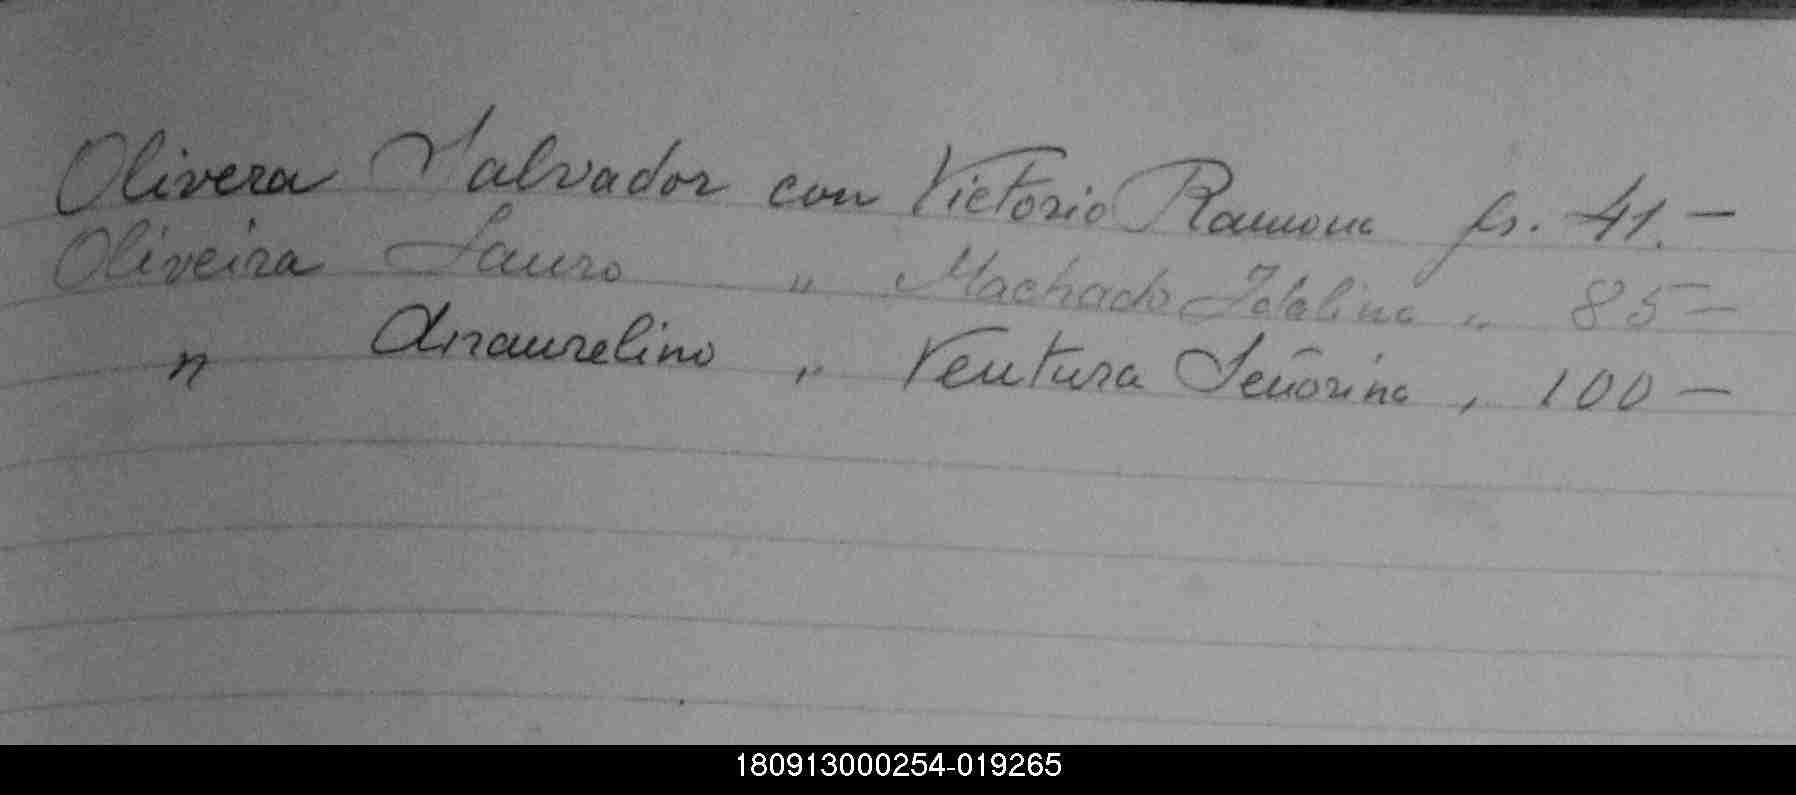 Olivera Salvador con Victorio Ramona fs. 41.—
Oliveira Lauro " Machado Idalina " 85—
" " Ventura Señorina , 100—
180913000254-019265